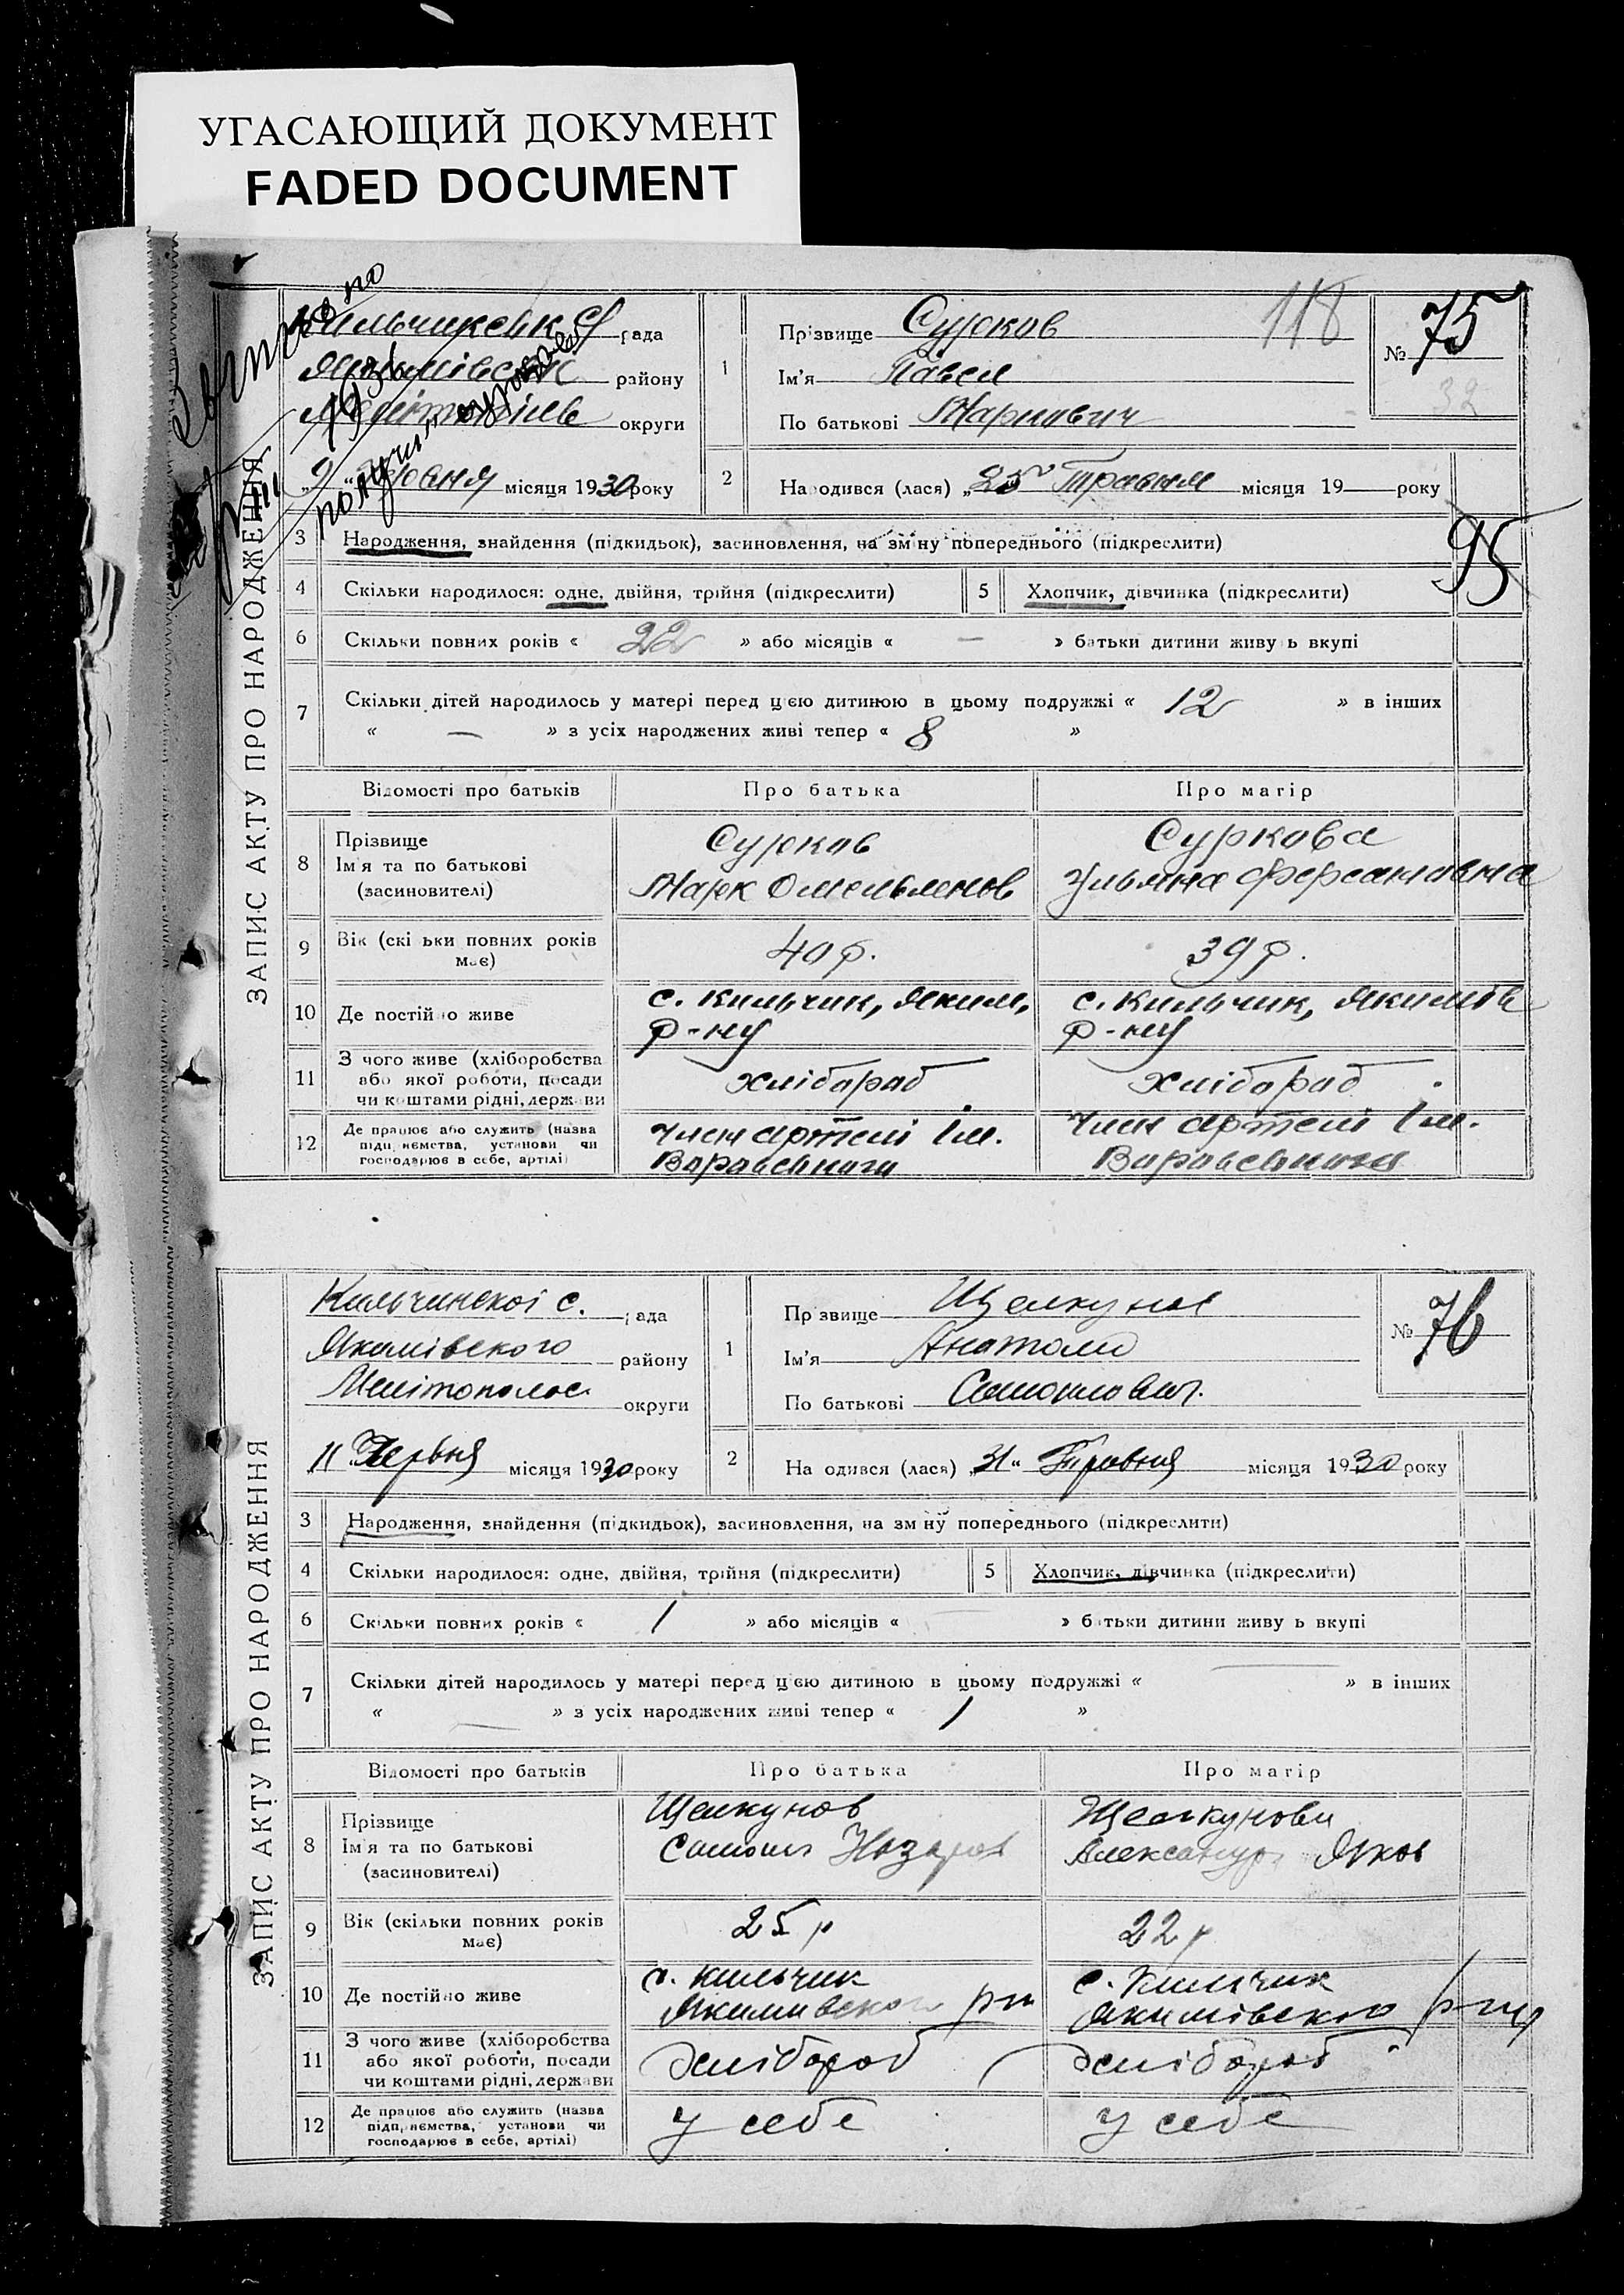 УГАСАЮЩИЙ ДОКУМЕНТ
FADED DOCUMENT
ЗАПИС АКТУ ПРО НАРОДЖЕННЯ
рада
району
округи
9 місяця 1930 року
1 Прізвище Сурков 118
Ім'я Павел
По батькові Маркович
№ 75
32
2 Народився (лася) „25" Травня місяця 19 року
3 Народження, знайдення (підкидьок), засиновлення, на зміну попереднього (підкреслити)
95
4 Скільки народилося: одне, двійня, трійня (підкреслити) 5 Хлопчик, дівчинка (підкреслити)
6 Скільки повних років « 22 » або місяців « — » батьки дитини живу ь вкупі
7 Скільки дітей народилось у матері перед цією дитиною в цьому подружжі « 12 » в інших
« — » з усіх народжених живі тепер « 8 »
Відомості про батьків Про батька Про матір
8 Прізвище Сурков Суркова
Ім'я та по батькові Марк Омельянов Ульяна
(засиновителі)
9 Вік (скі ьки повних років має) 40 р. 39 р.
10 Де постійно живе с. Кильчик, Яким. р-ну с. Кильчик, Якимів р-ну
11 З чого живе (хліборобства
або якої роботи, посади
чи коштами рідні, держави хлібороб хлібороб
12 Де працює або служить (назва
підприємства, установи чи
господарює в себе, артілі) Член артелі Ім. Член артелі Ім.
ЗАПИС АКТУ ПРО НАРОДЖЕННЯ
Кильчинскої с. рада
Якимівского району
Мелітополос округи
„11" Червня місяця 1930 року
1 Пр звище Щелкунов
Ім'я Анатолій
По батькові
№ 76
2 На одився (лася) „31" Травня місяця 1930 року
3 Народження, знайдення (підкидьок), засиновлення, на зм ну попереднього (підкреслити)
4 Скільки народилося: одне, двійня, трійня (підкреслити) 5 Хлопчик, дівчинка (підкреслити)
6 Скільки повних років « 1 » або місяців « — » б тьки дитини живу ь вкупі
7 Скільки дітей народилось у матері перед цією дитиною в цьому подружжі « — » в інших
« — » з усіх народжених живі тепер « 1 »
Відомості про батьків Про батька Про матір
8 Прізвище Щелкунов Щелкунова
Ім'я та по батькові Назаров Александра Яков
(засиновителі)
9 Вік (скільки повних років має) 25 р 22 р
10 Де постійно живе с. Кильчик Якимивского рн с. Кильчик Якимівского р-ну
11 З чого живе (хліборобства
або якої роботи, посади
чи коштами рідні, держави Хлібороб хлібороб
12 Де працює або служить (назва
підприємства, установи чи
господарює в себе, артілі) У себе У себе